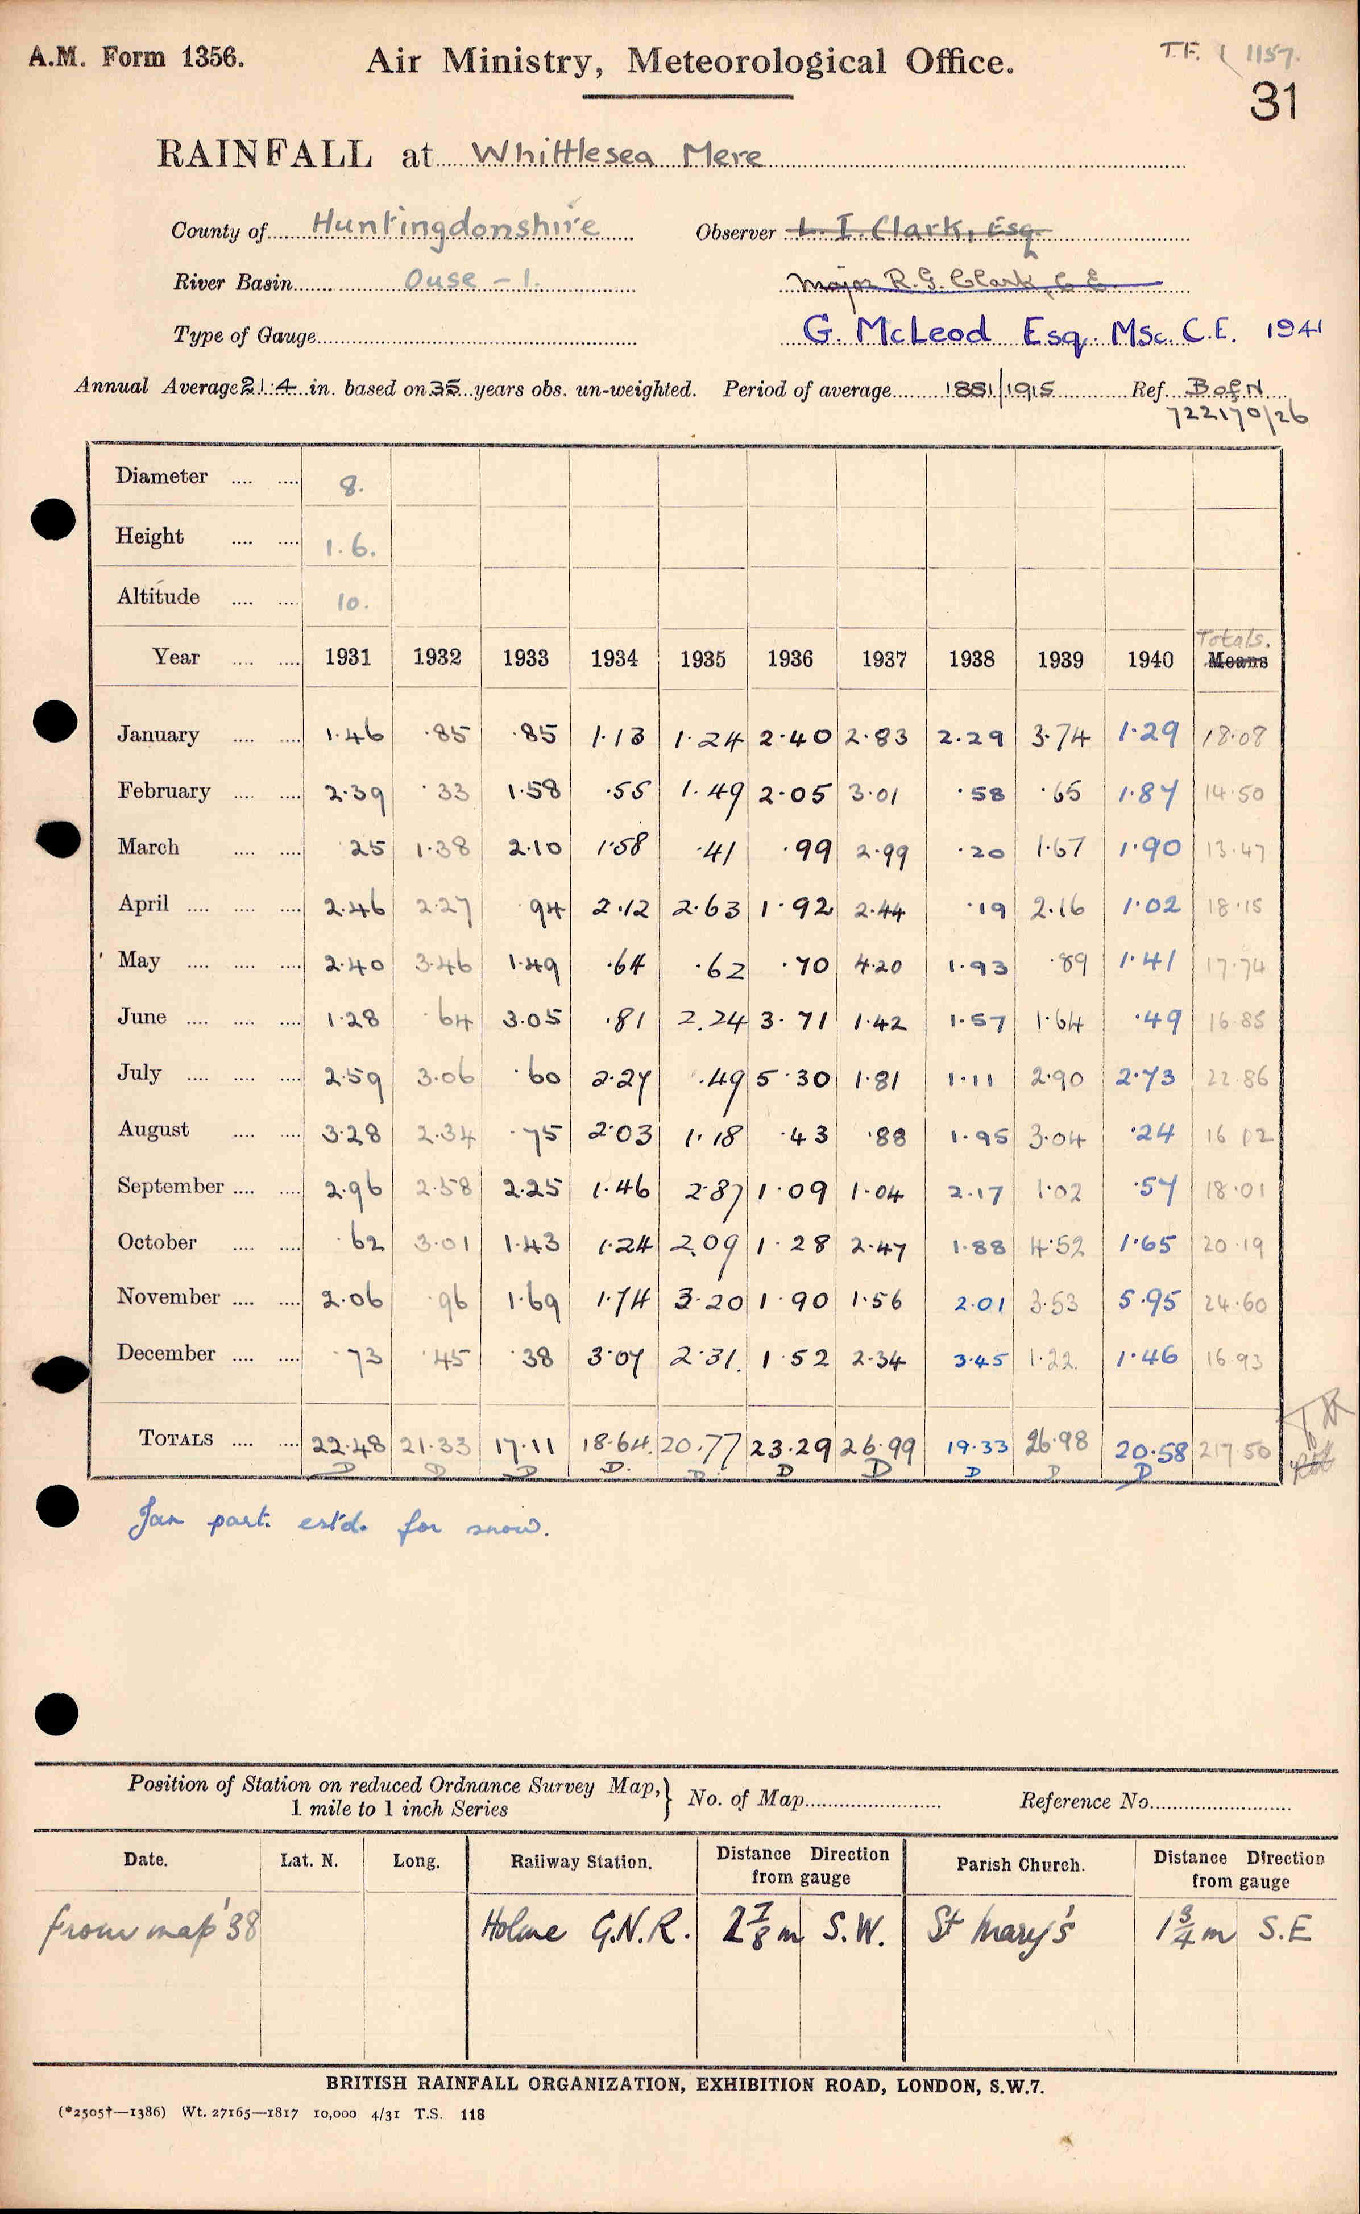 A.M. Form 1356.
Air Ministry, Meteorological Office.
T.F. ( 1157.
31
RAINFALL at Whittlesea Mere
County of Huntingdonshire Observer L. I. Clark, Esq.
River Basin Ouse - 1. Major R.G. Clark, C.E.
Type of Gauge G. McLeod Esq. MSc. C.E. 1941
Annual Average 21.4 in. based on 35 years obs. un-weighted. Period of average 1881/1915 Ref. B of N
722170/26
Diameter .... .... 8.
Height .... .... 1.6.
Altitude .... .... 10.
Totals.
Year .... .... 1931 1932 1933 1934 1935 1936 1937 1938 1939 1940 Means
January .... .... 1.46 .85 .85 1.13 1.24 2.40 2.83 2.29 3.74 1.29 18.08
February .... .... 2.39 .33 1.58 .55 1.49 2.05 3.01 .58 .65 1.87 14.50
March .... .... .25 1.38 2.10 1.58 .41 .99 2.99 .20 1.67 1.90 13.47
April .... .... .... 2.46 2.27 .94 2.12 2.63 1.92 2.44 .19 2.16 1.02 18.15
May .... .... .... 2.40 3.46 1.49 .64 .62 .70 4.20 1.93 .89 1.41 17.74
June .... .... .... 1.28 .64 3.05 .81 2.24 3.71 1.42 1.57 1.64 .49 16.85
July .... .... .... 2.59 3.06 .60 2.27 .49 5.30 1.81 1.11 2.90 2.73 22.86
August .... .... 3.28 2.34 .75 2.03 1.18 .43 .88 1.95 3.04 .24 16.12
September .... .... 2.96 2.58 2.25 1.46 2.87 1.09 1.04 2.17 1.02 .57 18.01
October .... .... .62 3.01 1.43 1.24 2.09 1.28 2.47 1.88 4.52 1.65 20.19
November .... .... 2.06 .96 1.69 1.74 3.20 1.90 1.56 2.01 3.53 5.95 24.60
December .... .... .73 .45 .38 3.07 2.31 1.52 2.34 3.45 1.22 1.46 16.93
TOTALS .... .... 22.48 21.33 17.11 18.64 20.77 23.29 26.99 19.33 26.98 20.58 217.50
D D D D D D D D D D
Jan part. estd. for snow.
Position of Station on reduced Ordnance Survey Map,} No. of Map Reference No.
1 mile to 1 inch Series
Date. Lat. N. Long. Railway Station. Distance from gauge Direction Parish Church. Distance from gauge Direction
from map '38 Holme G.N.R. 2 7/8 m S.W. St Mary's 1 3/4 m S.E
BRITISH RAINFALL ORGANIZATION, EXHIBITION ROAD, LONDON, S.W.7.
(*2505†—1386) Wt. 27165—1817 10,000 4/31 T.S. 118